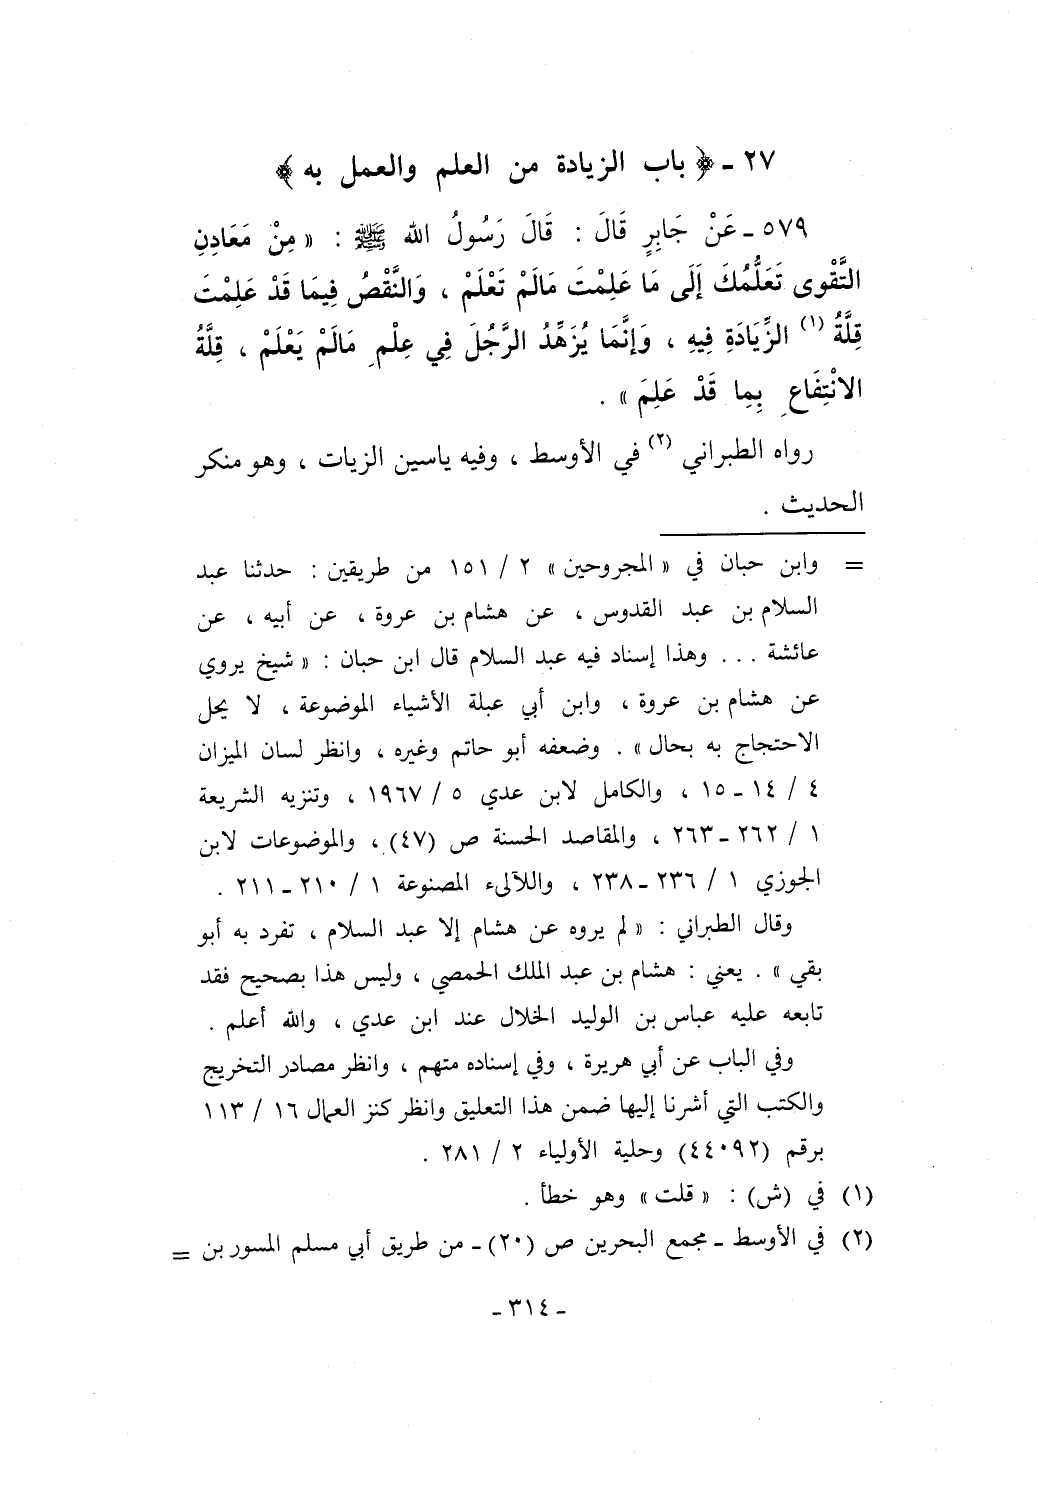 ٢٧ - ﴿ باب الزيادة من العلم والعمل به ﴾
٥٧٩ - عَنْ جَابِرٍ قَالَ : قَالَ رَسُولُ الله ﷺ : « مِنْ مَعَادِنِ
التَّقْوى تَعَلُّمُكَ إلَى مَا عَلِمْتَ مَالَمْ تَعْلَمْ ، وَالنَّقْصُ فِيمَا قَدْ عَلِمْتَ
قِلَّةُ (١) الزِّيَادَةِ فِيهِ ، وَإنَّمَا يُزَهِّدُ الرَّجُلَ فِي عِلْمِ مَالَمْ يَعْلَمْ ، قِلَّةُ
الانْتِفَاعِ بِمِا قَدْ عَلِمَ » .
رواه الطبراني (٢) في الأوسط ، وفيه ياسين الزيات ، وهو منكر
الحديث .
= وابن حبان في « المجروحين » ٢ / ١٥١ من طريقين : حدثنا عبد
السلام بن عبد القدوس ، عن هشام بن عروة ، عن أبيه ، عن
عائشة ... وهذا إسناد فيه عبد السلام قال ابن حبان : « شيخ يروي
عن هشام بن عروة ، وابن أبي عبلة الأشياء الموضوعة ، لا يحل
الاحتجاج به بحال » . وضعفه أبو حاتم وغيره ، وانظر لسان الميزان
٤ / ١٤ - ١٥ ، والكامل لابن عدي ٥ / ١٩٦٧ ، وتنزيه الشريعة
١ / ٢٦٢ - ٢٦٣ ، والمقاصد الحسنة ص (٤٧) ، والموضوعات لابن
الجوزي ١ / ٢٣٦ - ٢٣٨ ، واللآلىء المصنوعة ١ / ٢١٠ - ٢١١ .
وقال الطبراني : « لم يروه عن هشام إلا عبد السلام ، تفرد به أبو
بقي » . يعني : هشام بن عبد الملك الحمصي ، وليس هذا بصحيح فقد
تابعه عليه عباس بن الوليد الخلال عند ابن عدي ، والله أعلم .
وفي الباب عن أبي هريرة ، وفي إسناده متهم ، وانظر مصادر التخريج
والكتب التي أشرنا إليها ضمن هذا التعليق وانظر كنز العمال ١٦ / ١١٣
برقم (٤٤٠٩٢) وحلية الأولياء ٢ / ٢٨١ .
(١) في (ش) : « قلت » وهو خطأ .
(٢) في الأوسط - مجمع البحرين ص (٢٠) - من طريق أبي مسلم المسور بن =
- ٣١٤ -